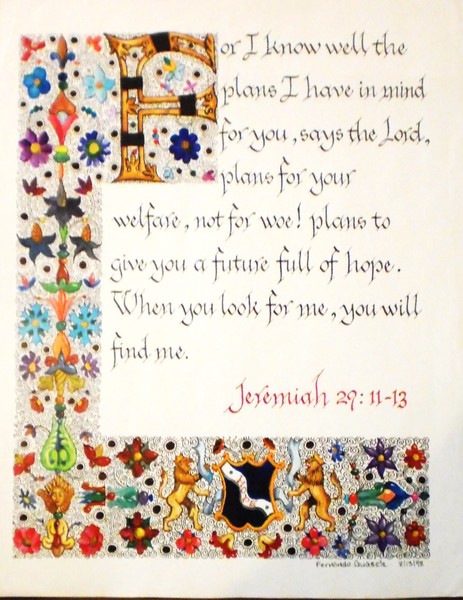 For I know well the
plans I have in mind
for you, says the Lord,
plans for your
welfare, not for woe! plans to
give you a future full of hope.
When you look for me, you will
find me.
Jeremiah 29:11-13
Fernando